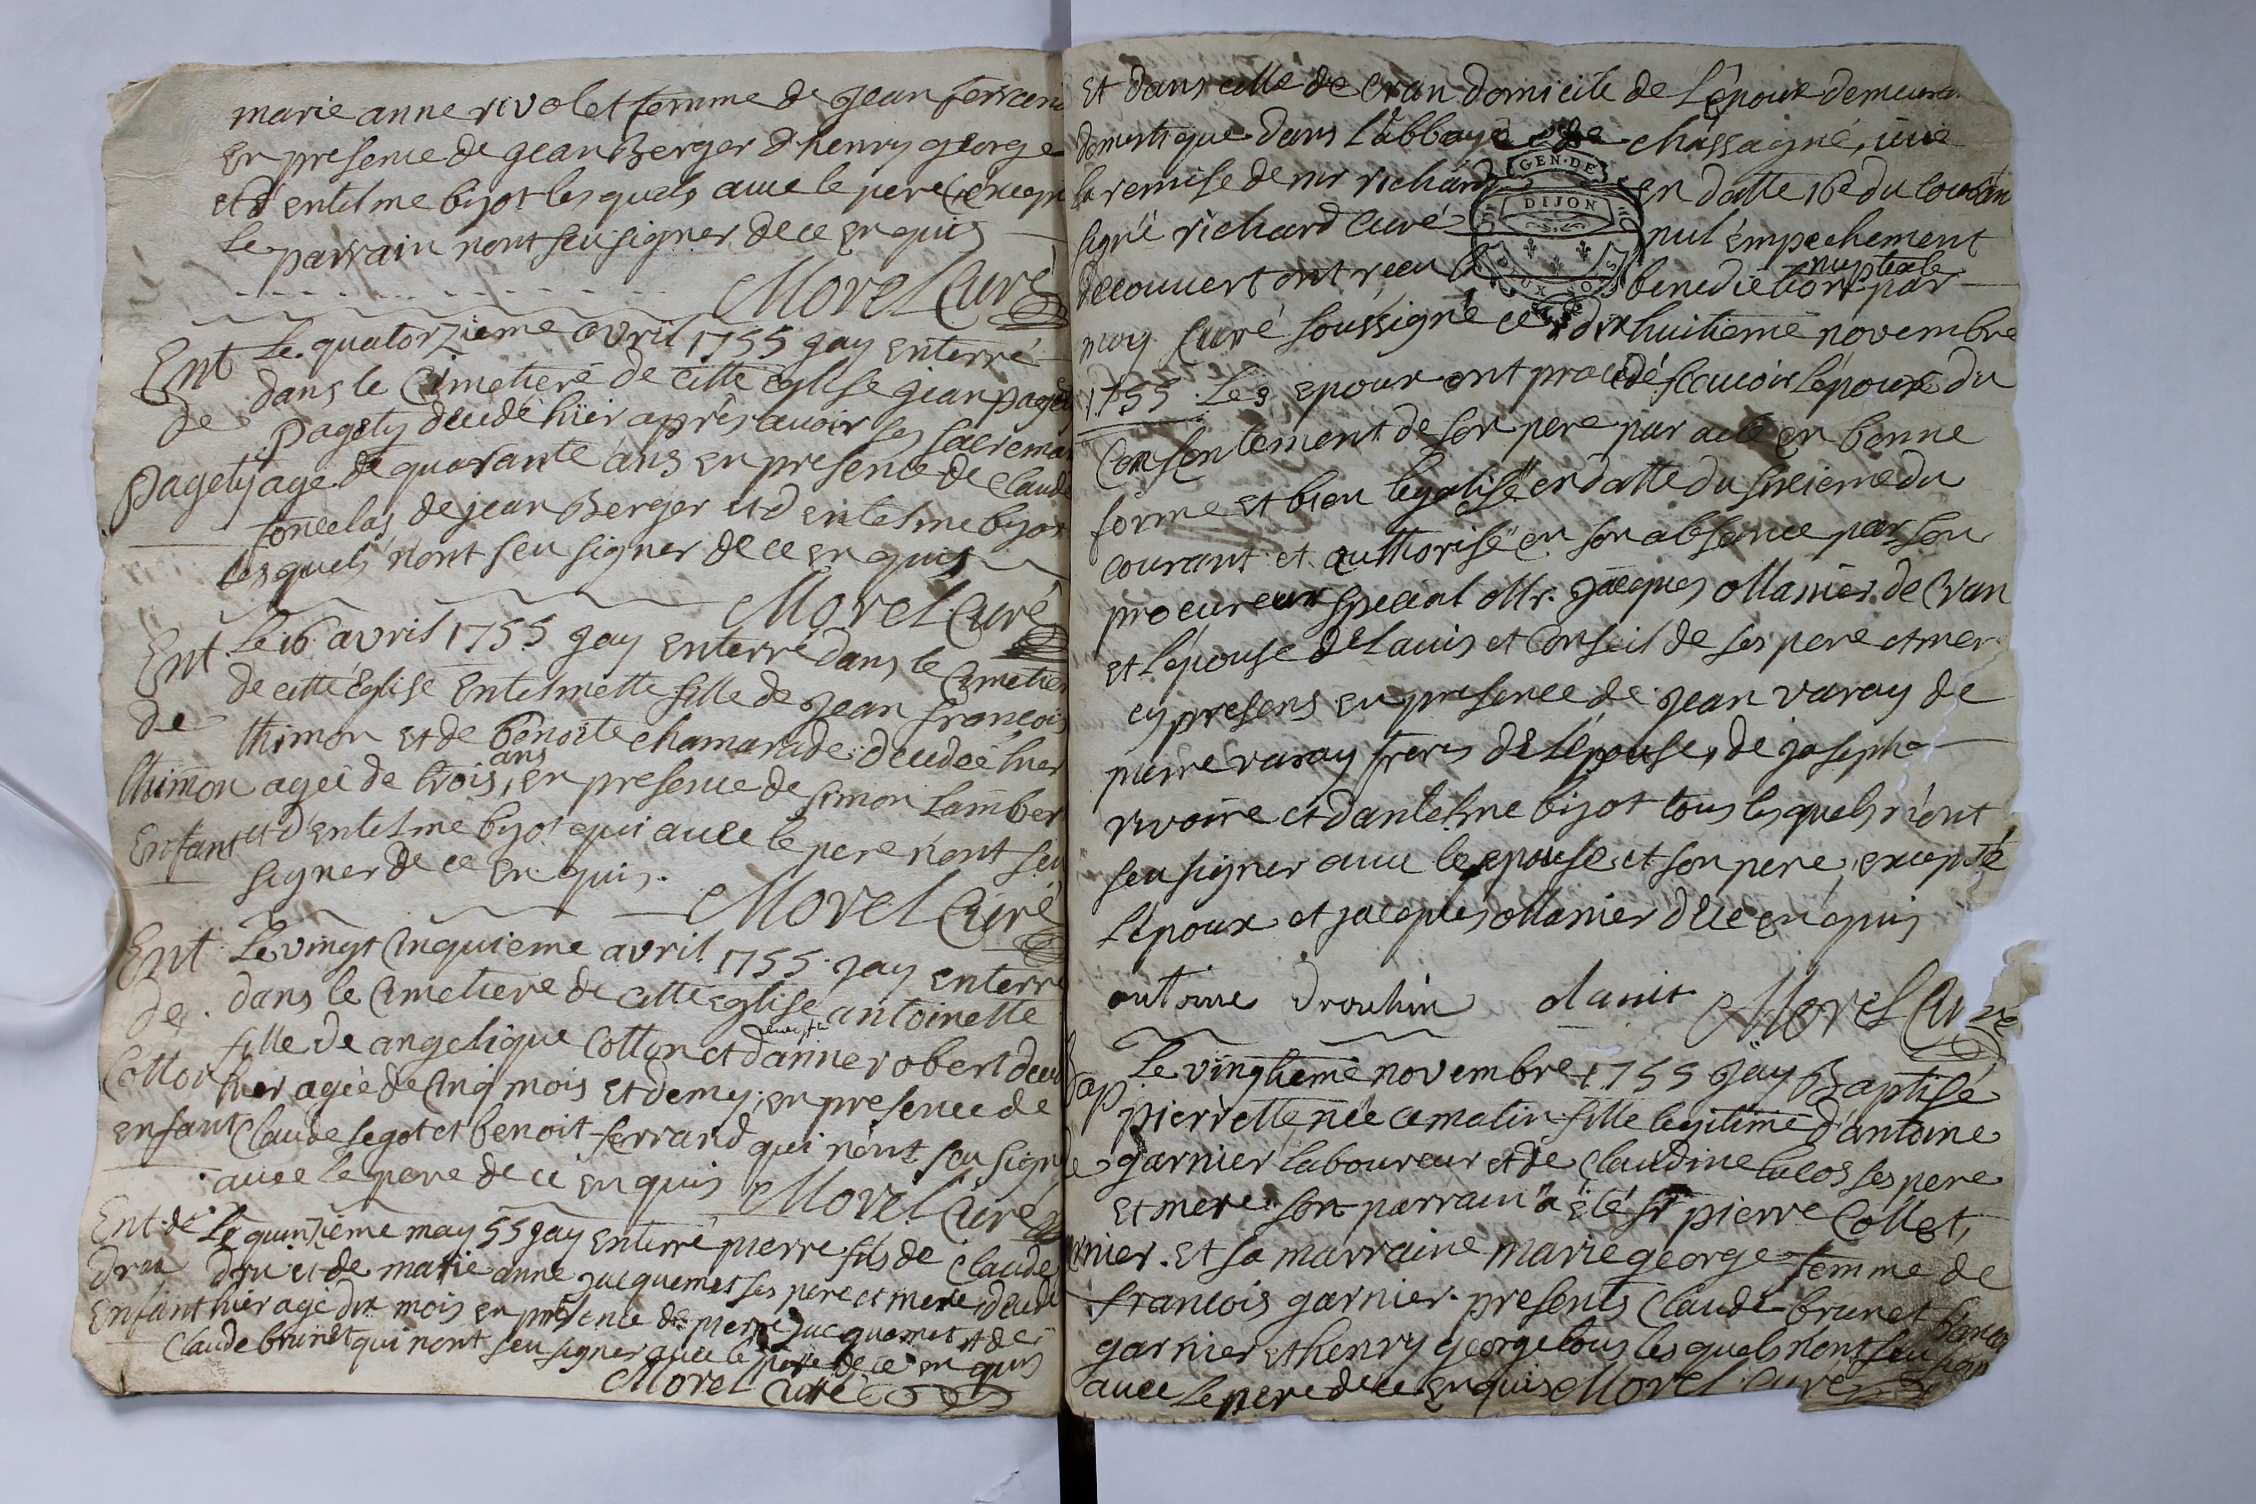 marie anne rivolet femme de jean ferrand
en presence de jean Berger d'henry george
et d'entelme bijot les quels avec le pere excepté
le parrain n'ont seu signer de ce enquis
Morel Curé
Ent Le quatorzieme avril 1755 jay enterré
dans le Cimetiere de cette eglise jean paget
de pagety decedé hier apprès avoir ses sacremens
pagety agé de quarante ans en presence de Claude
de jean Berger et d'entelme bijot
les quels n'ont seu signer de ce enquis
Morel Curé
Ent Le 16 avril 1755 jay enterré dans le Cimetiere
de cette Eglise Entelmette fille de jean françois
de thimon et de benoite chamarade decedée hier
thimon agée de trois ans, en presence de simon Lambert
Enfant et d'entelme bijot qui avec le pere n'ont seu
signer de ce enquis.
Morel Curé
Ent Le vingt Cinquieme avril 1755 jay enterré
de dans le Cimetiere de cette eglise antoinette
fille de angelique Cotton et d'anne robert
Cotton hier agée de Cinq mois et demy, en presence de
enfant Claude legot et benoit ferrand qui n'ont seu signer
avec le pere de ce enquis Morel Curé
Ent. de Le quinzieme may 55 jay enterré pierre fils de Claude
dru dru et de marie anne jacquemet ses pere et mere, decedé
Enfant hier agé dix mois en presence de pierre jacquemet et de
Claude brunet qui n'ont seu signer avec le pere de ce enquis
Morel Curé
Et dans celle de Cran domicile de l'epoux demeurant
domestique dans l'abbaye de chassagne, veüe
la remise de mr richard en datte 16e du courant
signé richard Curé nul émpechement
decouvert ont receu la benediction nuptiale par
moy Curé soussigné ce dix huitieme novembre
1755. Les epoux ont procedé scavoir l'époux du
Consentement de son pere par acte en bonne
forme et bien legalisé en datte du sixieme du
courant et authorisé en son absence par son
procureur special Mr. jacques Manier de Cran
et l'épouse de l'avis et Conseil de ses pere et mere
cy presens en presence de jean varay de
pierre varay freres de l'épouse, de joseph
rivoire et d'antelme bijot tous les quels n'ont
seu signer avec le epouse et son pere, excepté
L'époux et jacques Manier de ce enquis
antoine drouhin Morel Curé
Bap. Le vingtieme novembre 1755 jay Baptisé
pierrette née ce matin fille legitime d'antoine
de garnier laboureur et de Claudine lacos ses pere
et mere son parrain a été sr pierre Collet,
garnier. et sa marraine marie george femme de
francois garnier. presents Claude brunet
garnier et henry george tous les quels n'ont seu signer
avec le pere de ce enquis Morel Curé
GEN. DE
DIJON
DEUX SOLS